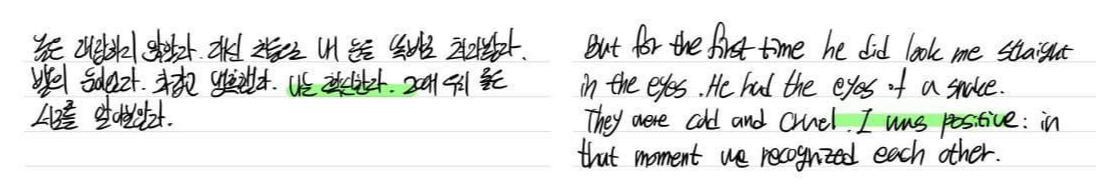 놈은 대답하지 않았다. 대신 처음으로 내 눈을 똑바로 쳐다봤다.
뱀의 눈이었다. 차갑고 냉혹했다. 나는 확신한다. 그때 우리 둘은
서로를 알아보았다.
But for the first time he did look me straight
in the eyes. He had the eyes of a snake.
They were cold and cruel. I was positive: in
that moment we recognized each other.